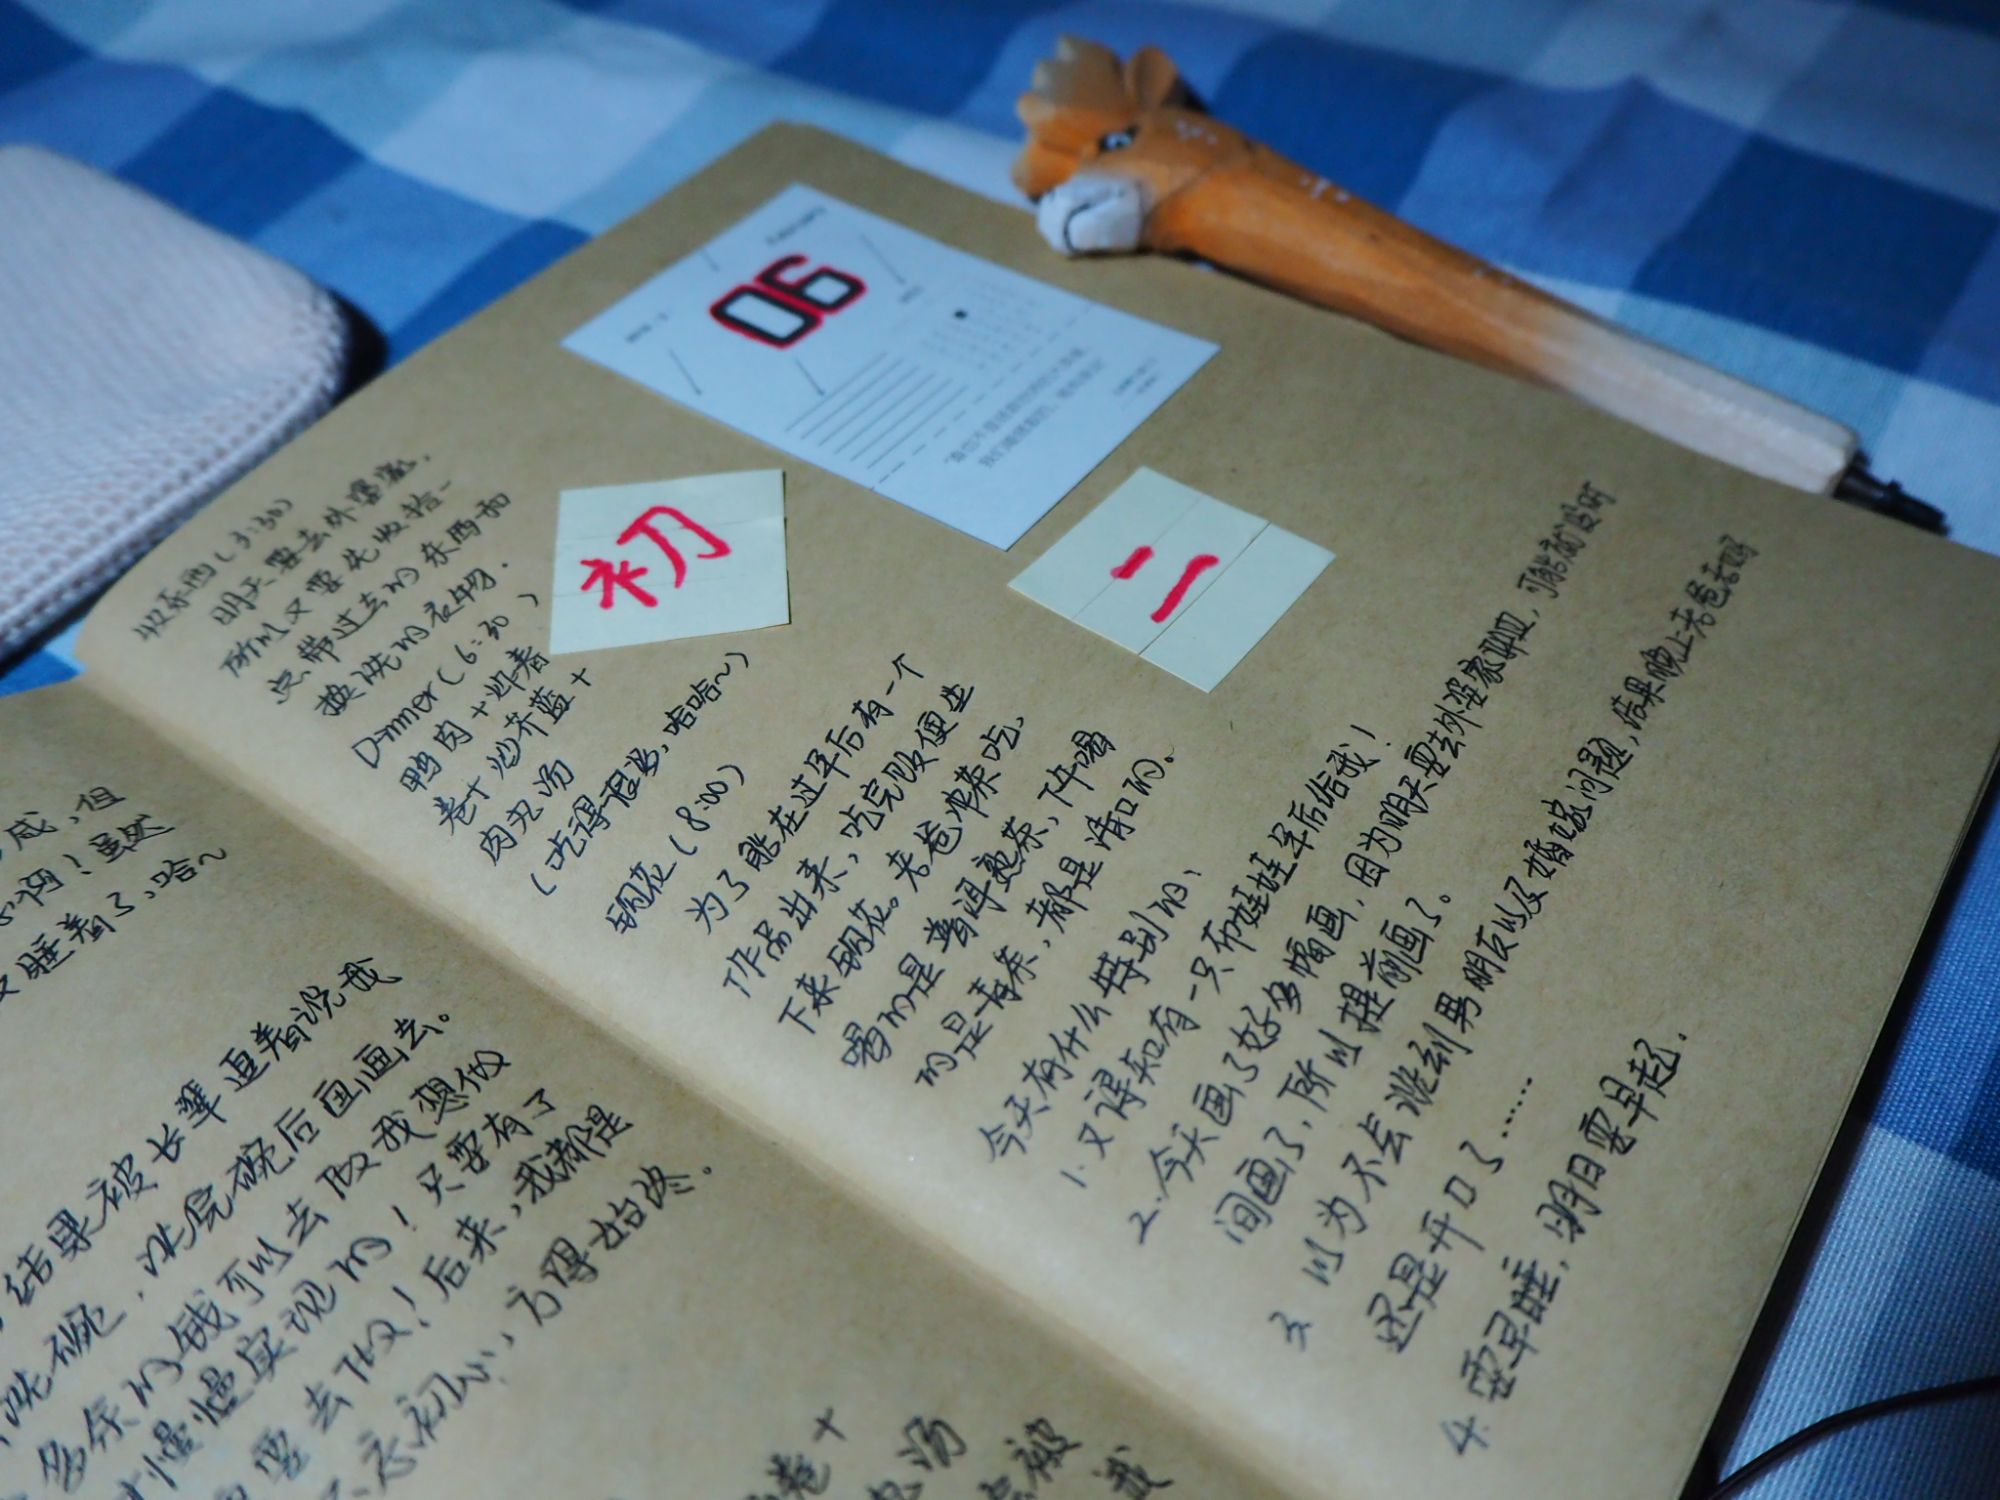 06
初
二
收东西(3:30)
明天要去外婆家,
所以又要先收拾一
点带过去的东西和
换洗的衣物.
Dinner(6:30)
鸭肉+炸春
卷+炒芥蓝+
肉丸汤
(吃得很多,哈哈~)
钩花(8:00)
为了能在过年后有一个
作品出来,吃完饭便坐
下来钩花。老爸冲茶吃,
喝的是普洱熟茶,下午喝
的是青茶,都是清口的。
今天有什么特别的:
1.又得知有一只布娃娃年后给我!
2.今天画了好多幅画,因为明天要去外婆家
间画了,所以提前画了。
3.以为不会谈到男朋友以及婚嫁问题,结果晚上老爸
还是开口了……
4.要早睡,明日要早起.
感,但
虽然
睡着了,哈~
结果被长辈追着说我
洗碗,洗完碗后画画去。
多余的钱可以去做我想做
慢慢实现的!只要有了
要去做!后来,我都是
忘初心,方得始终.
卷+
汤
被
我